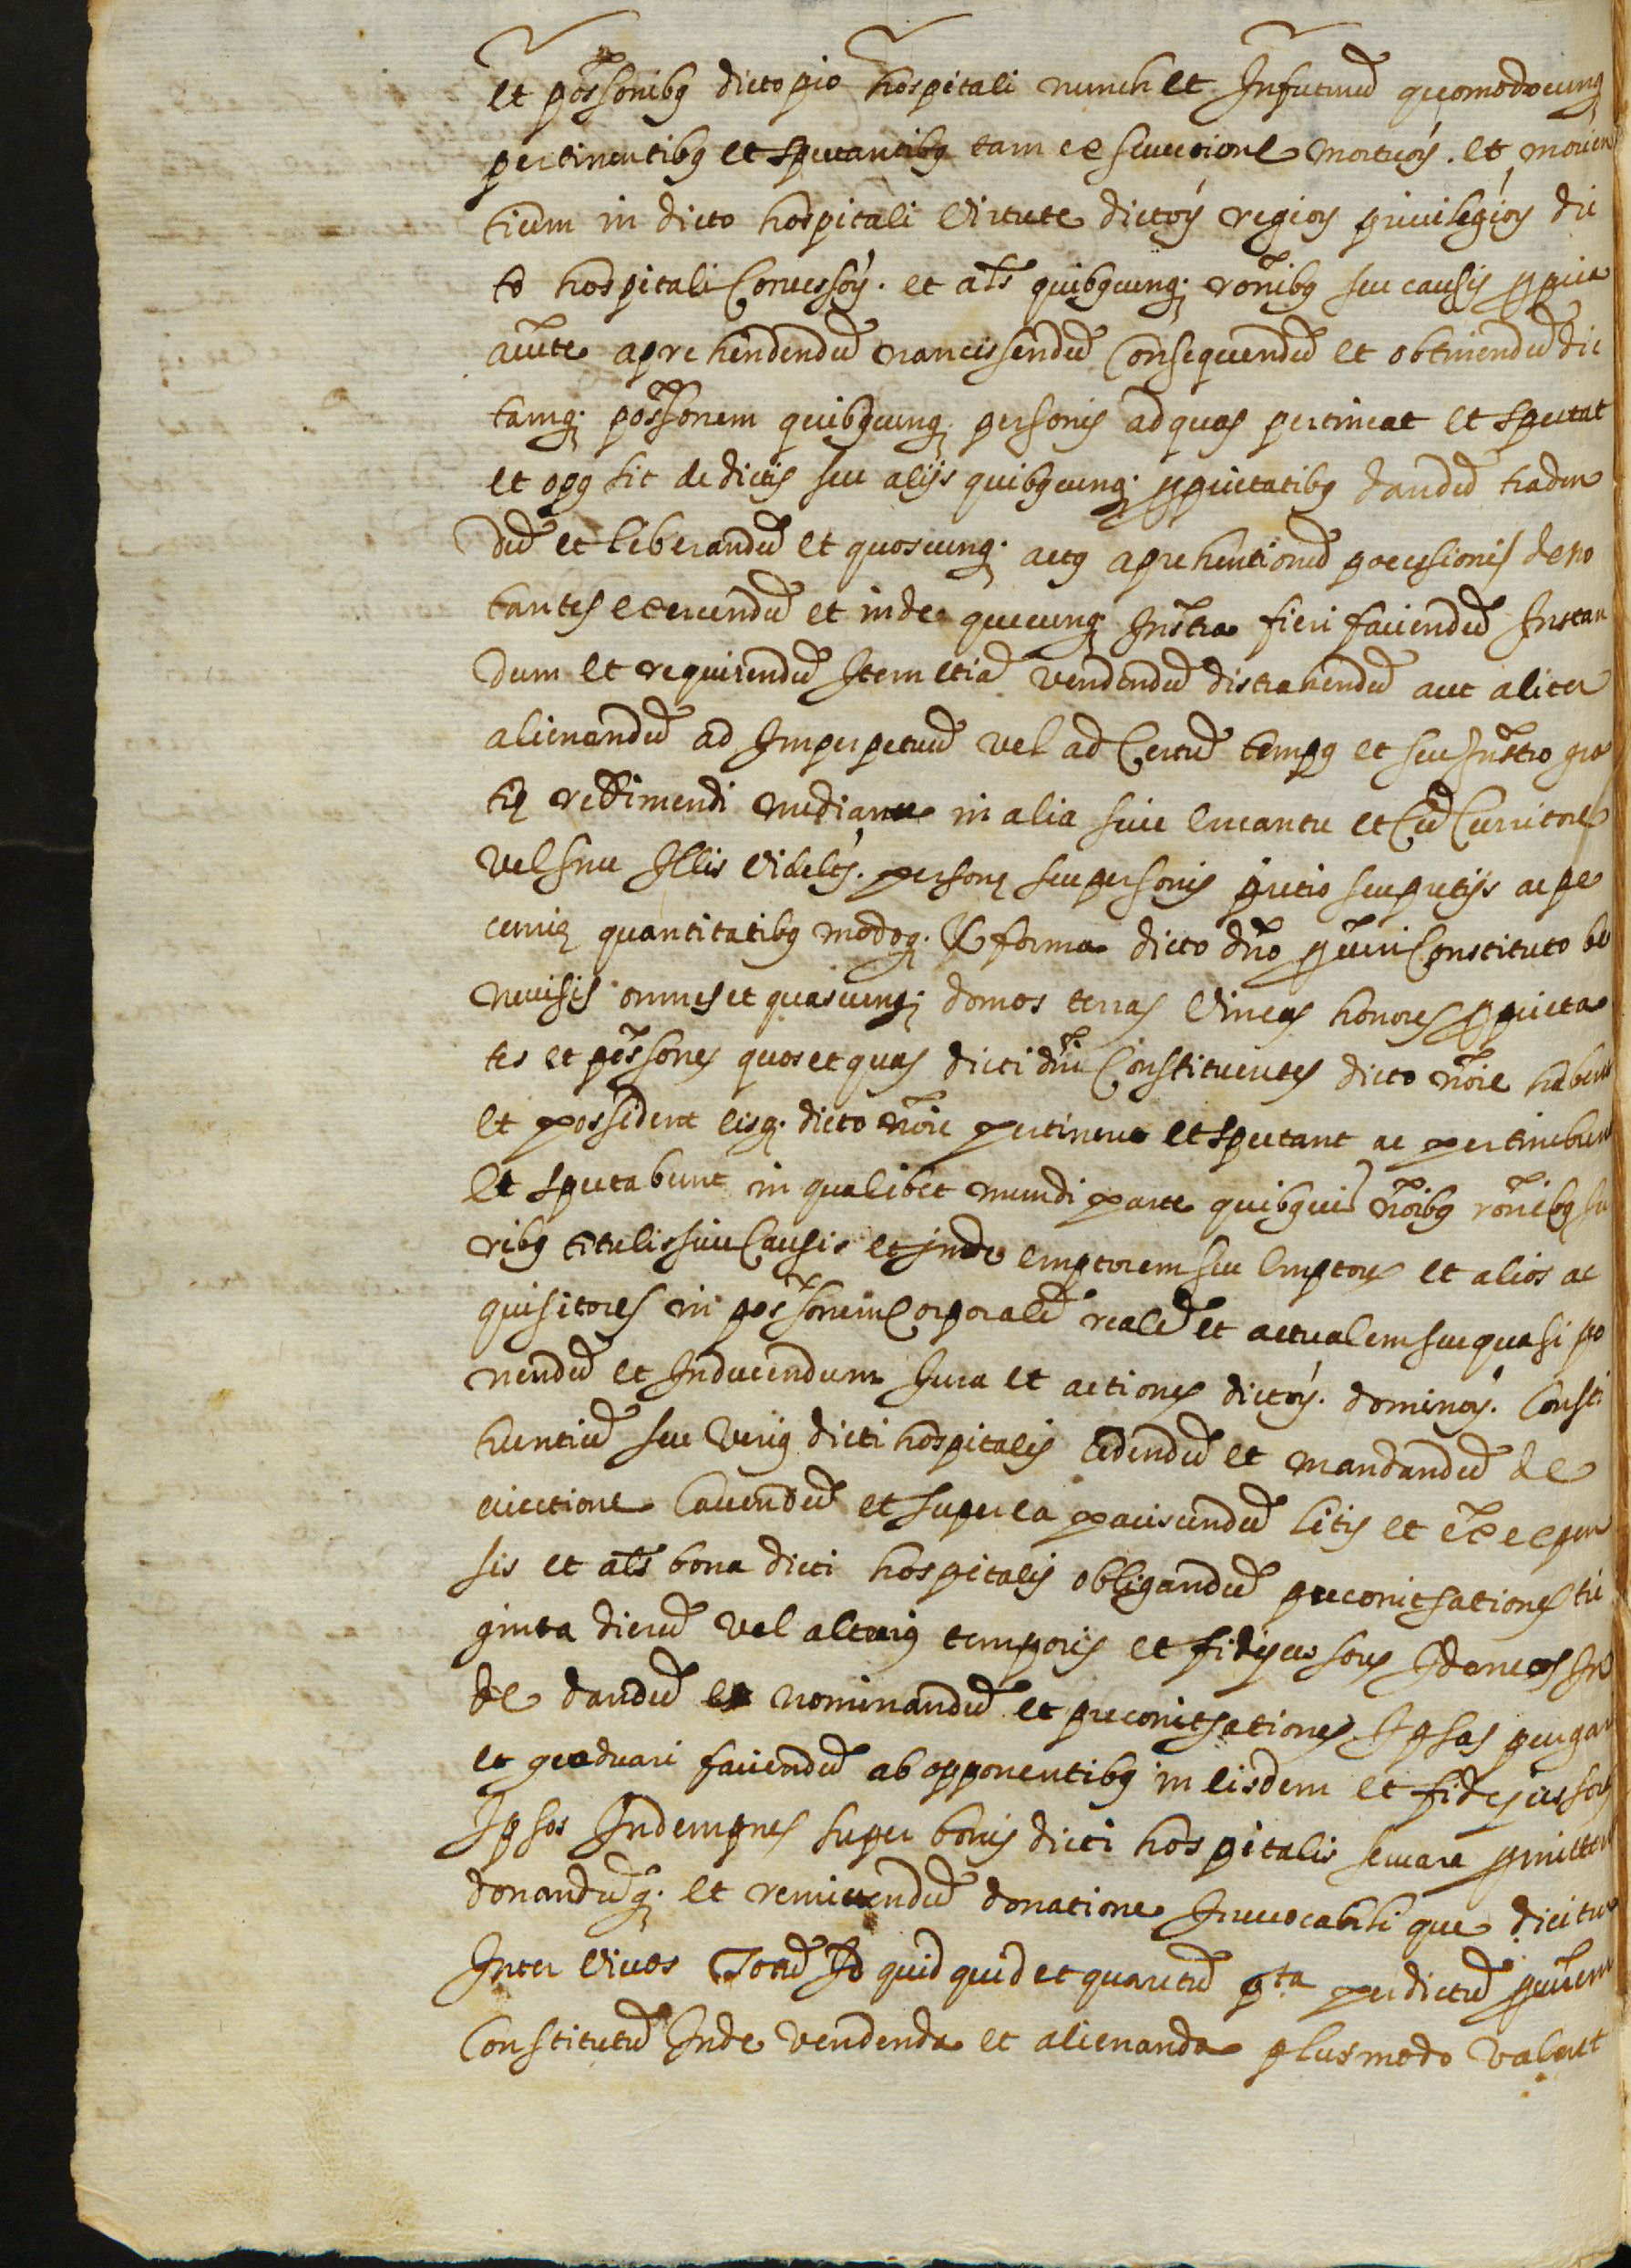 et possõnibꝯ dicto pio hospitali nunch et In futurũ quomodocunqꝫ
pertinentibꝯ et spectantibꝯ tam ex successione mortuoꝝ. et morien
tium in dicto hospitali virtute dictoꝝ regioꝝ priuilegioꝝ dic
to hospitali Concessoꝝ. et als̃ quibꝯcunqꝫ rõnibꝯ seu causis ꝓpria
aucte aprehendendũ nancissendũ Consequendũ et obtinendũ dic
tamqꝫ possõnem quibꝯcunqꝫ personis ad quas pertineat et spectat
et opꝯ sit de dictis seu alijs quibꝯcunqꝫ ꝓprietatibꝯ dandũ traden
dũ et liberandũ et quoscunqꝫ actꝯ aprehentionũ pocessionis deno
tantes exercendũ et inde quecunqꝫ Instra fieri faciendũ Instan
dum et requirendũ Item etiã vendendũ distrahendũ aut aliter
alienandũ ad Imperpetuũ vel ad Certũ tempꝯ et seu Instro gra
tię reddimendi mediante in alia siue encantu et Cũ Curritore
vel sine Illis videlꝫ. personę seu personis pretio seu pretijs ac pe
cunię quantitatibꝯ modoqꝫ. & forma dicto dño ꝓcuri Constituto be
neuisis omnes et quascunqꝫ domos terras vineas honores ꝓprieta
tes et possõnes quos et quas dicti dñi Constituentes dicto nõie habent
et possident eisqꝫ. dicto nõie pertinent et spectant ac pertinebunt
et spectabunt in qualibet mundi parte quibꝯuis nõibꝯ rõnibꝯ Iu
ribꝯ titulis siue Causis et inde emptorem seu emptores et alios ac
quisitores in possõnem Corporalẽ realẽ et actualem seu quasi po
nendũ et Inducendum Iura et actiones dictoꝝ. dominoꝝ. Consti
tuentiũ seu veriꝯ dicti hospitalis cedendũ et mandandũ de
euictione Cauendũ et super ea paciscendũ litis et ex̃ expen
sis et als̃ bona dicti hospitalis obligandũ preconitsationes tri
ginta dierũ vel alteriꝯ temporis et fideiussores Idoneos In
de dandũ et nominandũ et preconitsationes Ipsas purgari
et graduari faciendũ ab opponentibꝯ in eisdem et fideiussores
Ipsos Indempnes super bonis dicti hospitalis seruare ꝓmittere
donandũqꝫ. et remittendũ donatione Irreuocabili que dicitur
Inter viuos Totũ Id quidquid et quantũ pta per dictũ ꝓcurem
Constitutũ Inde vendenda et alienanda plus modo valent